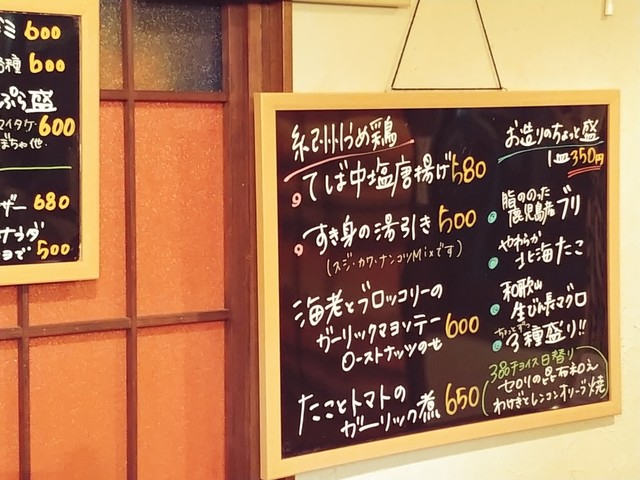 ミ 600
種 600
ぷら盛
マイタケ 600
ぼちゃ他.
ザー 680
サラダ
ヨで 500
紀州うめ鶏
てば中塩唐揚げ 580
すき身の湯引き 500
(スジ・カワ・ナンコツMixです)
海老とブロッコリーの
ガーリックマヨソテー
ローストナッツのせ 600
たことトマトの
ガーリック煮 650
お造りのちょっと盛
1皿350円
脂ののった
鹿児島産 ブリ
やわらか
北海たこ
和歌山
生びん長マグロ
ちょっとずつ
3種盛り!!
3品チョイス日替り
セロリの昆布和え
わけぎとレンコンオリーブ焼